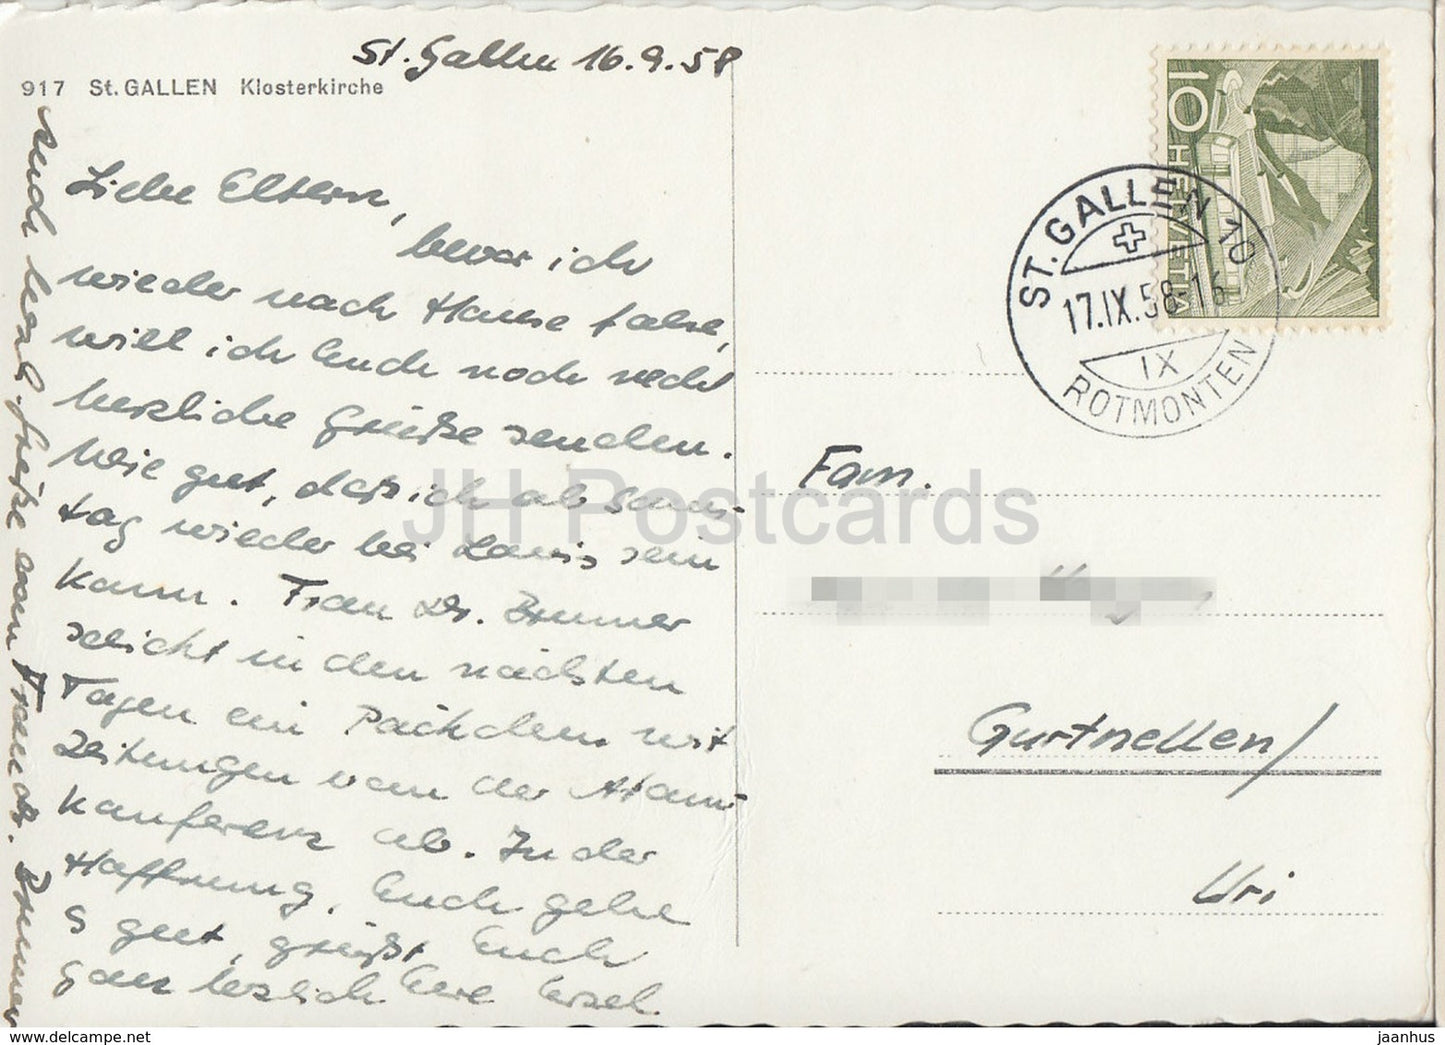 St. Gallen 16.9.58
917 St. GALLEN Klosterkirche
Liebe Eltern,
bevor ich
wieder nach Hause fahre,
will ich Euch noch recht
herzliche Grüße senden.
Wie gut, daß ich ab Sams-
tag wieder bei Louis sein
kann. Frau Dr. Brunner
schickt in den nächsten
Tagen ein Päckchen mit
Zeitungen von der Atom-
konferenz ab. In der
Hoffnung, Euch gehe
es gut, grüßt Euch
ganz herzlich Eure Ursel.
Auch herzl. Grüße von Frau Dr. Brunner
10 HELVETIA
ST. GALLEN 10
17.IX.58-16
IX
ROTMONTEN
Fam.
Gurtnellen/
Uri
JH Postcards
www.delcampe.net
jaanhus